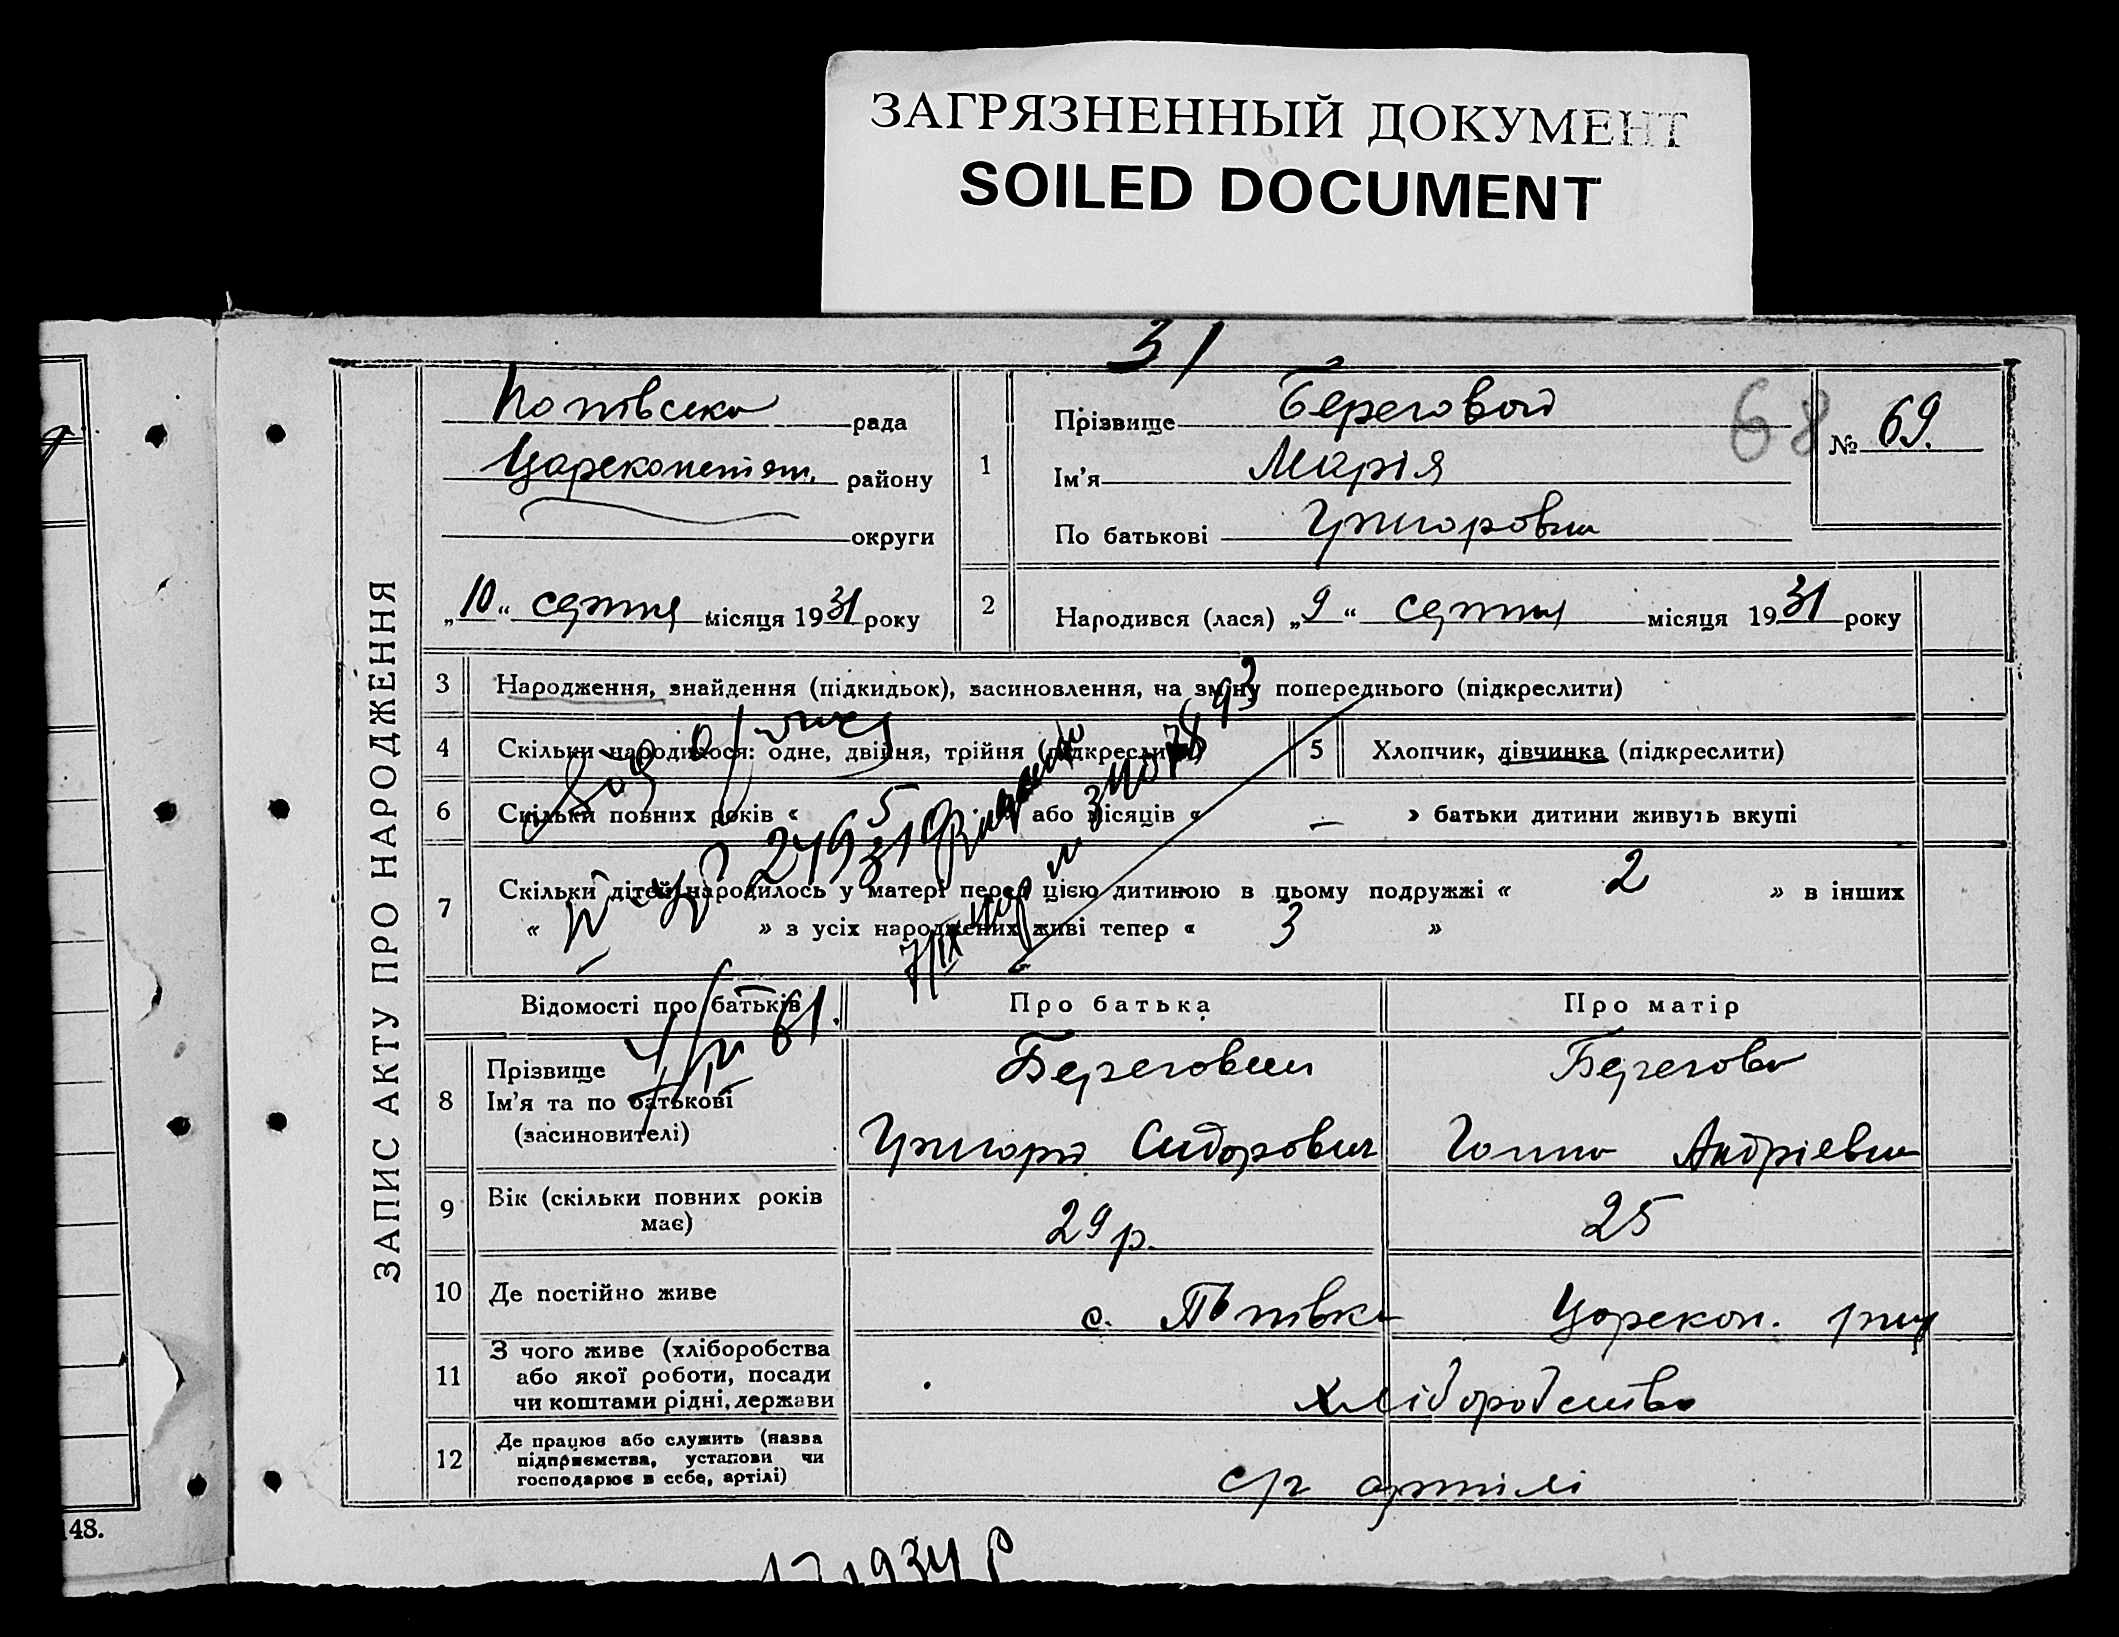 ЗАГРЯЗНЕННЫЙ ДОКУМЕНТ
SOILED DOCUMENT
31
ЗАПИС АКТУ ПРО НАРОДЖЕННЯ
Попівська рада
Цареконст. району
округи
„10“ серпня місяця 1931 року
1
Прізвище Береговой
Ім’я Марія
По батькові Григоровна
68
№ 69.
2 Народився (лася) „9“ серпня місяця 1931 року
3 Народження, знайдення (підкидьок), засиновлення, на зміну попереднього (підкреслити)
4 Скільки народилося: одне, двійня, трійня (підкреслити)
5 Хлопчик, дівчинка (підкреслити)
6 Скільки повних років « 5 або місяців « — » батьки дитини живуть вкупі
7 Скільки дітей народилось у матері перед цією дитиною в цьому подружжі « 2 » в інших
« » з усіх народжених живі тепер « 3 »
Відомості про батьків Про батька Про матір
61.
8 Прізвище
Ім’я та по батькові
(засиновителі)
Береговий
Григорій Сидорович
Берегова
Ганна Андріевна
9 Вік (скільки повних років
має)
29 р. 25
10 Де постійно живе с. Попівка Царекон. рну
11 З чого живе (хліборобства
або якої роботи, посади
чи коштами рідні, держави
Хліборобство
12 Де працює або служить (назва
підприємства, установи чи
господарює в себе, артілі)
с/г артілі
148.
1934 р